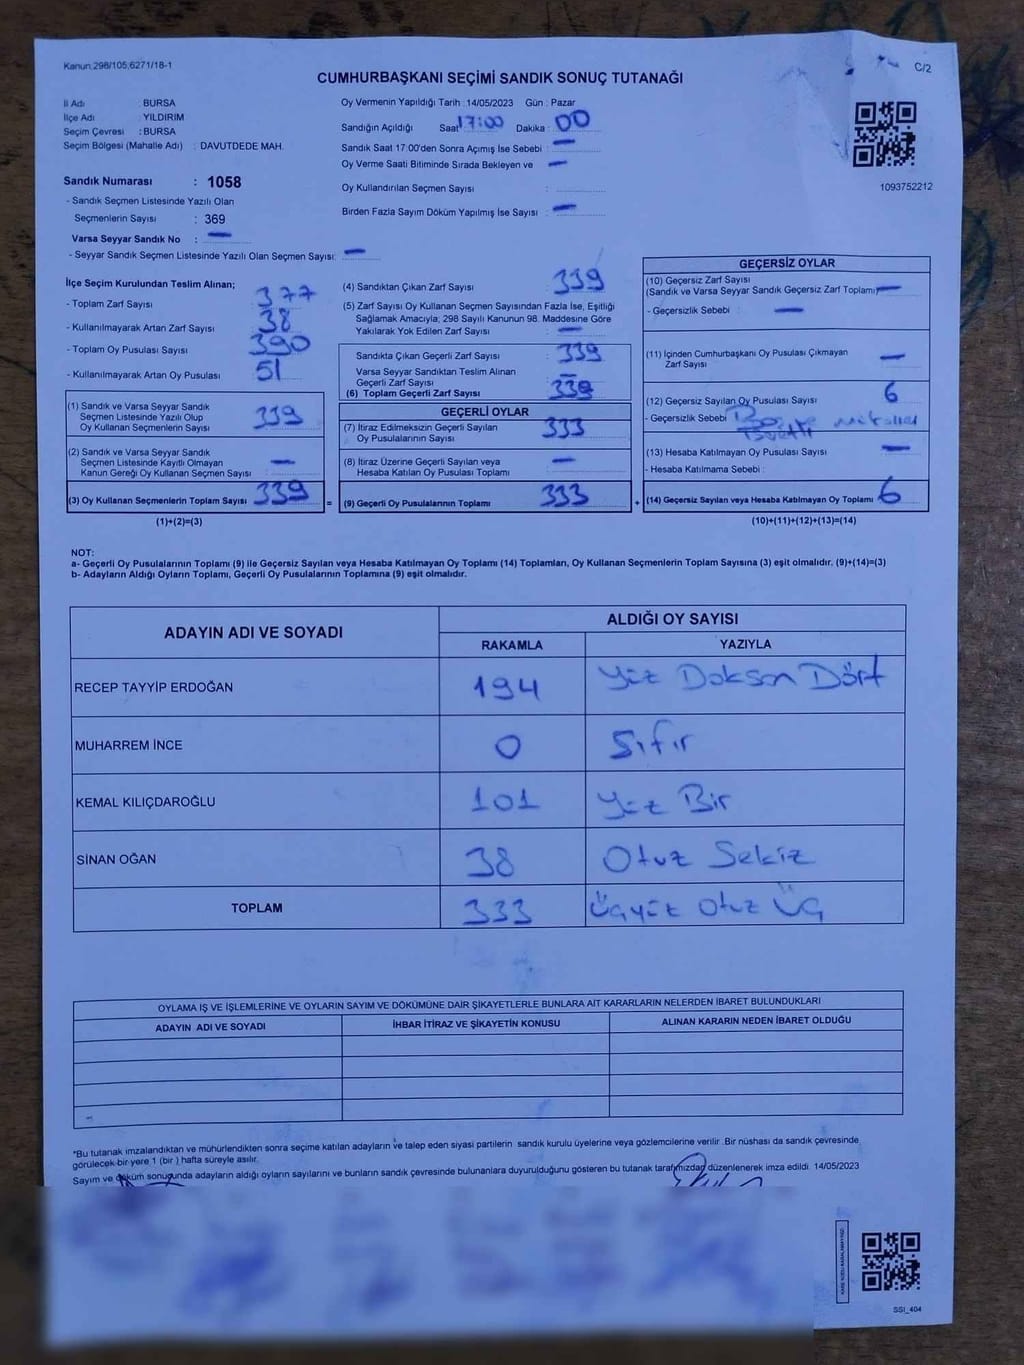 Kanun:298/105;6271/18-1
C/2
CUMHURBAŞKANI SEÇİMİ SANDIK SONUÇ TUTANAĞI
İl Adı : BURSA
İlçe Adı : YILDIRIM
Seçim Çevresi : BURSA
Seçim Bölgesi (Mahalle Adı) : DAVUTDEDE MAH.
Sandık Numarası : 1058
- Sandık Seçmen Listesinde Yazılı Olan
Seçmenlerin Sayısı : 369
Varsa Seyyar Sandık No : —
- Seyyar Sandık Seçmen Listesinde Yazılı Olan Seçmen Sayısı: —
Oy Vermenin Yapıldığı Tarih :14/05/2023 Gün : Pazar
Sandığın Açıldığı Saat 17:00 Dakika : 00
Sandık Saat 17:00'den Sonra Açılmış İse Sebebi : —
Oy Verme Saati Bitiminde Sırada Bekleyen ve —
Oy Kullandırılan Seçmen Sayısı :
Birden Fazla Sayım Döküm Yapılmış İse Sayısı : —
1093752212
İlçe Seçim Kurulundan Teslim Alınan;
- Toplam Zarf Sayısı : 377
- Kullanılmayarak Artan Zarf Sayısı : 38
- Toplam Oy Pusulası Sayısı : 390
- Kullanılmayarak Artan Oy Pusulası : 51
(1) Sandık ve Varsa Seyyar Sandık
Seçmen Listesinde Yazılı Olup
Oy Kullanan Seçmenlerin Sayısı : 339
(2) Sandık ve Varsa Seyyar Sandık
Seçmen Listesinde Kayıtlı Olmayan
Kanun Gereği Oy Kullanan Seçmen Sayısı : —
(3) Oy Kullanan Seçmenlerin Toplam Sayısı : 339 =
(1)+(2)=(3)
(4) Sandıktan Çıkan Zarf Sayısı : 339
(5) Zarf Sayısı Oy Kullanan Seçmen Sayısından Fazla İse, Eşitliği
Sağlamak Amacıyla; 298 Sayılı Kanunun 98. Maddesine Göre
Yakılarak Yok Edilen Zarf Sayısı : —
Sandıkta Çıkan Geçerli Zarf Sayısı : 339
Varsa Seyyar Sandıktan Teslim Alınan
Geçerli Zarf Sayısı : —
(6) Toplam Geçerli Zarf Sayısı : 339
GEÇERLİ OYLAR
(7) İtiraz Edilmeksizin Geçerli Sayılan
Oy Pusulalarının Sayısı : 333
(8) İtiraz Üzerine Geçerli Sayılan veya
Hesaba Katılan Oy Pusulası Toplamı : —
(9) Geçerli Oy Pusulalarının Toplamı : 333 +
GEÇERSİZ OYLAR
(10) Geçersiz Zarf Sayısı
(Sandık ve Varsa Seyyar Sandık Geçersiz Zarf Toplamı) —
- Geçersizlik Sebebi : —
(11) İçinden Cumhurbaşkanı Oy Pusulası Çıkmayan
Zarf Sayısı : —
(12) Geçersiz Sayılan Oy Pusulası Sayısı : 6
- Geçersizlik Sebebi
(13) Hesaba Katılmayan Oy Pusulası Sayısı : —
- Hesaba Katılmama Sebebi :
(14) Geçersiz Sayılan veya Hesaba Katılmayan Oy Toplamı : 6
(10)+(11)+(12)+(13)=(14)
NOT:
a- Geçerli Oy Pusulalarının Toplamı (9) ile Geçersiz Sayılan veya Hesaba Katılmayan Oy Toplamı (14) Toplamları, Oy Kullanan Seçmenlerin Toplam Sayısına (3) eşit olmalıdır. (9)+(14)=(3)
b- Adayların Aldığı Oyların Toplamı, Geçerli Oy Pusulalarının Toplamına (9) eşit olmalıdır.
ADAYIN ADI VE SOYADI ALDIĞI OY SAYISI
RAKAMLA YAZIYLA
RECEP TAYYİP ERDOĞAN 194 Yüz Doksan Dört
MUHARREM İNCE 0 Sıfır
KEMAL KILIÇDAROĞLU 101 Yüz Bir
SİNAN OĞAN 38 Otuz Sekiz
TOPLAM 333 Üçyüz Otuz Üç
OYLAMA İŞ VE İŞLEMLERİNE VE OYLARIN SAYIM VE DÖKÜMÜNE DAİR ŞİKAYETLERLE BUNLARA AİT KARARLARIN NELERDEN İBARET BULUNDUKLARI
ADAYIN ADI VE SOYADI İHBAR İTİRAZ VE ŞİKAYETİN KONUSU ALINAN KARARIN NEDEN İBARET OLDUĞU
*Bu tutanak imzalandıktan ve mühürlendikten sonra seçime katılan adayların ve talep eden siyasi partilerin sandık kurulu üyelerine veya gözlemcilerine verilir .Bir nüshası da sandık çevresinde
görülecek bir yere 1 (bir ) hafta süreyle asılır.
Sayım ve döküm sonuunda adayların aldığı oyların sayılarını ve bunların sandık çevresinde bulunanlara duyurulduğunu gösteren bu tutanak tarafımızdan düzenlenerek imza edildi. 14/05/2023
SSI_404